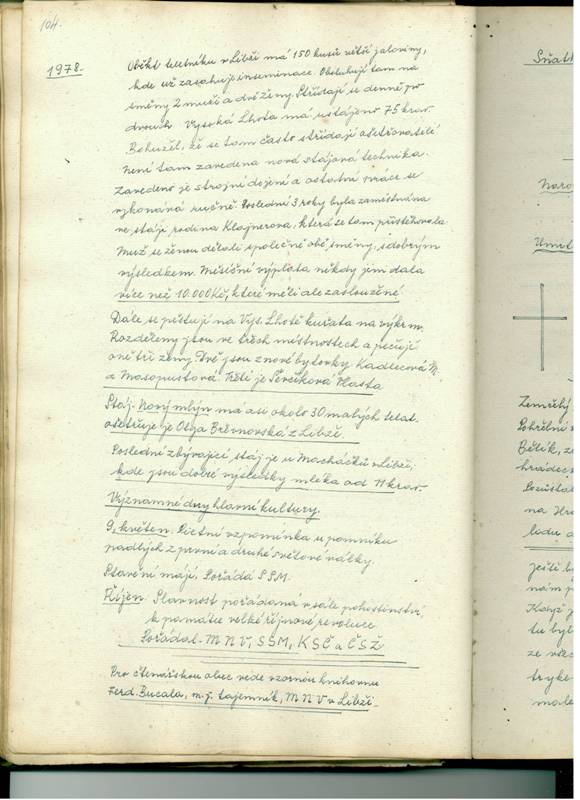 104.
1978.
Objekt teletníku v Libži má 150 kusů větší jaloviny,
kde už zasahuje inseminace. Obsluhují tam na
směny 2 muži a dvě ženy. Střídají se denně po
dvouch. Vysoká Lhota má ustájeno 75 krav.
Bohužel, že se tam často střídají ošetřovatelé.
Není tam zavedena nová stájová technika.
Zavedeno je strojní dojení a ostatní práce se
vykonává ručně. Poslední 3 roky byla zaměstnána
ve stáji rodina Klajnerova, která se tam přistěhovala.
Muž se ženou dělali společně obě směny, s dobrým
výsledkem. Měsíční výplata někdy jim dala
více než 10.000 Kč, které měli ale zaslouženě.
Dále se pěstují na Vys. Lhotě kuřata na výkrm.
Rozděleny jsou ve třech místnostech a pečují
o ně tři ženy. Dvě jsou z nové bytovky Kadlecová M.
a Masopustová. Třetí je Ševčíková Vlasta
Stáj. Nový mlýn má asi okolo 30 malých telat.
ošetřuje je Olga Břevnovská z Libže.
Poslední zbývající stáj je u Macháčků v Libži,
kde jsou dobré výsledky mléka od 11 krav.
Významné dny hlavní kultury.
9. květen. Pietní vzpomínka u pomníku
padlých z první a druhé světové války.
Stavění májí. Pořádá SSM.
Říjen. Slavnost pořádaná v sále pohostinství,
k památce velké říjnové revoluce.
Pořádal. MNV, SSM, KSČ a ČSŽ
Pro čtenářskou obec vede vzornou knihovnu
Ferd. Bucala, m. j. tajemník, MNV v Libži.
Sňatk
Naro
Umrt
Zemřelý
Pohřební
Bělík, ze
hradec
Pozůstal
na Hro
lidu a
Ještě b
nám p
Když j
tu byl
ze všec
tryke
male